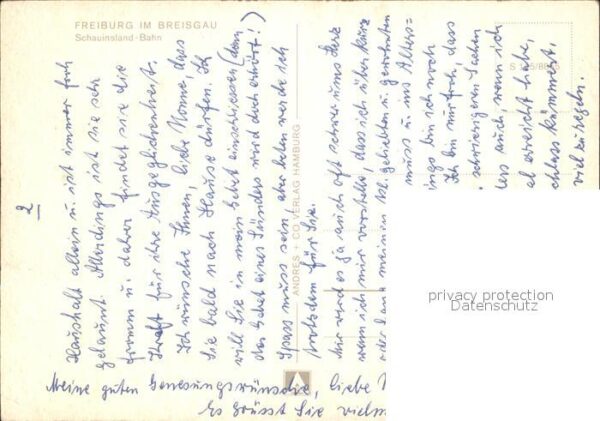 FREIBURG IM BREISGAU
Schauinsland-Bahn
2
Haushalt allein u. ist immer froh
gelaunt. Allerdings ist sie sehr
fromm u. daher findet sie die
Kraft für ihre Ausgeglichenheit.
Ich wünsche Ihnen, liebe Nonne, dass
Sie bald nach Hause dürfen. Ich
will Sie in mein Gebet einschliessen (denn
das Gebet eines Sünders wird doch erhört!)
Spass muss sein, aber beten werde ich
trotzdem für Sie.
Mir wird es ja auch oft schwer ums Herz
wenn ich mir vorstelle, dass ich über kurz
oder lang meinen geliebten u. gewohnten
muss u. ins Alters-
ings bin ich noch
Ich bin nur froh, dass
schwierigeren Sachen
auch wenn ich
erreicht habe,
kümmert,
viel zu regeln.
Meine guten Genesungswünsche, liebe
Es grüsst Sie vielm
ANDRES + CO VERLAG HAMBURG
privacy protection
Datenschutz